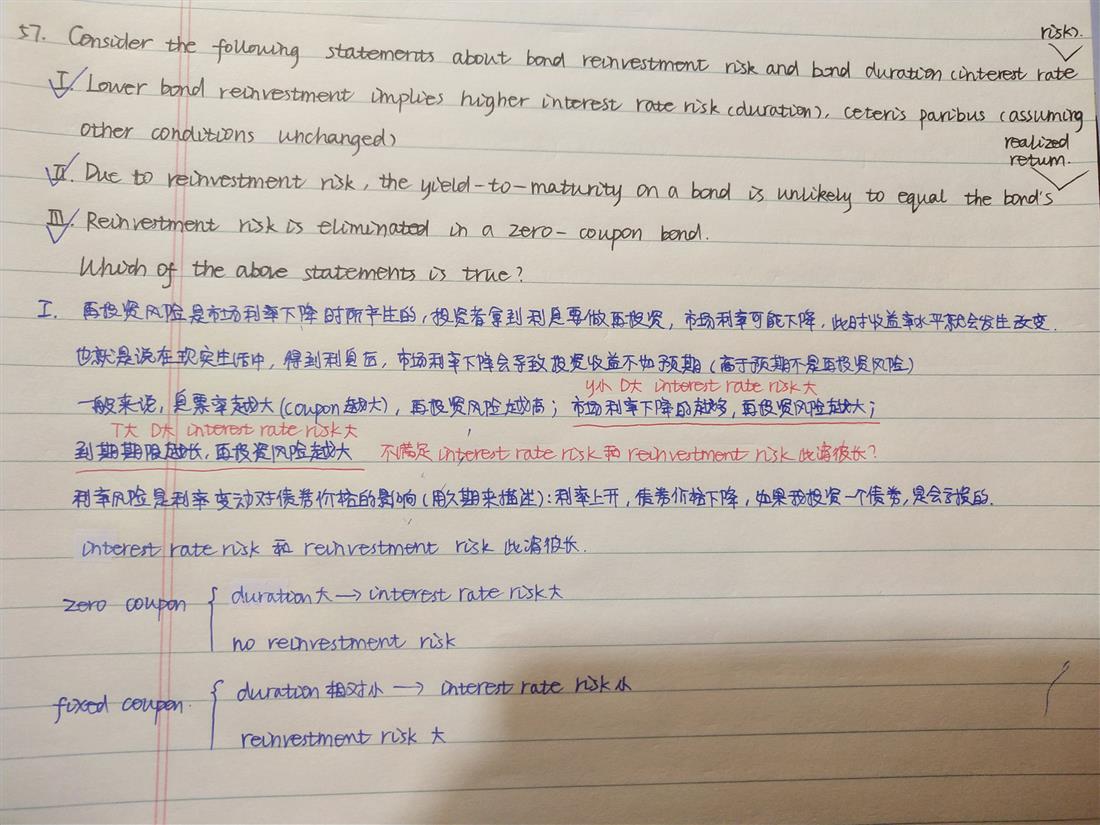 risk).
57. Consider the following statements about bond reinvestment risk and bond duration (interest rate
I. Lower bond reinvestment implies higher interest rate risk (duration), ceteris paribus (assuming
other conditions unchanged)
realized
return.
II. Due to reinvestment risk, the yield-to-maturity on a bond is unlikely to equal the bond's
III. Reinvestment risk is eliminated in a zero-coupon bond.
Which of the above statements is true?
I. 再投资风险是市场利率下降时所产生的,投资者拿到利息要做再投资,市场利率可能下降,此时收益率水平就会发生改变.
也就是说在现实生活中,得到利息后,市场利率下降会导致投资收益不如预期(高于预期不是再投资风险)
y小 D大 interest rate risk大
一般来说,息票率越大(coupon越大),再投资风险越高;市场利率下降的越多,再投资风险越大;
T大 D大 interest rate risk大
到期期限越长,再投资风险越大 不满足interest rate risk和reinvestment risk此消彼长?
利率风险是利率变动对债券价格的影响(用久期来描述):利率上升,债券价格下降,如果我投资一个债券,是会亏损的.
interest rate risk 和 reinvestment risk 此消彼长.
zero coupon { duration大→interest rate risk大
no reinvestment risk
fixed coupon. { duration相对小→interest rate risk小
reinvestment risk 大